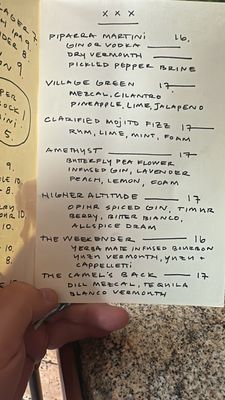 x x x
PIPARRA MARTINI 16.
GIN OR VODKA
DRY VERMOUTH
PICKLED PEPPER BRINE
VILLAGE GREEN 17
MEZCAL, CILANTRO
PINEAPPLE, LIME, JALAPEÑO
CLARIFIED MOJITO FIZZ 17
RUM, LIME, MINT, FOAM
AMETHYST 17
BUTTERFLY PEA FLOWER
INFUSED GIN, LAVENDER
PEACH, LEMON, FOAM
HIGHER ALTITUDE 17
OPIHR SPICED GIN, TIMUR
BERRY, BITTER BIANCO,
ALLSPICE DRAM
THE WEEKENDER 16
YERBA MATE INFUSED BOURBON
YUZU VERMOUTH, YUZU +
CAPPELLETTI
THE CAMEL'S BACK 17
DILL MEZCAL, TEQUILA
BLANCO VERMOUTH